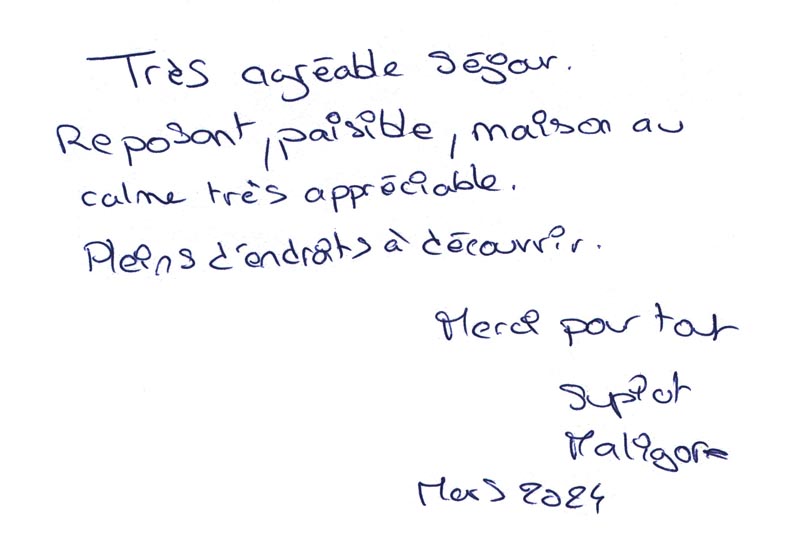 Très agréable ségour.
Reposant, paisible, maison au
calme très appréciable.
Pleins d'endroits à découvrir.
Merci pour tout
Supiot
Maligorne
Mars 2024